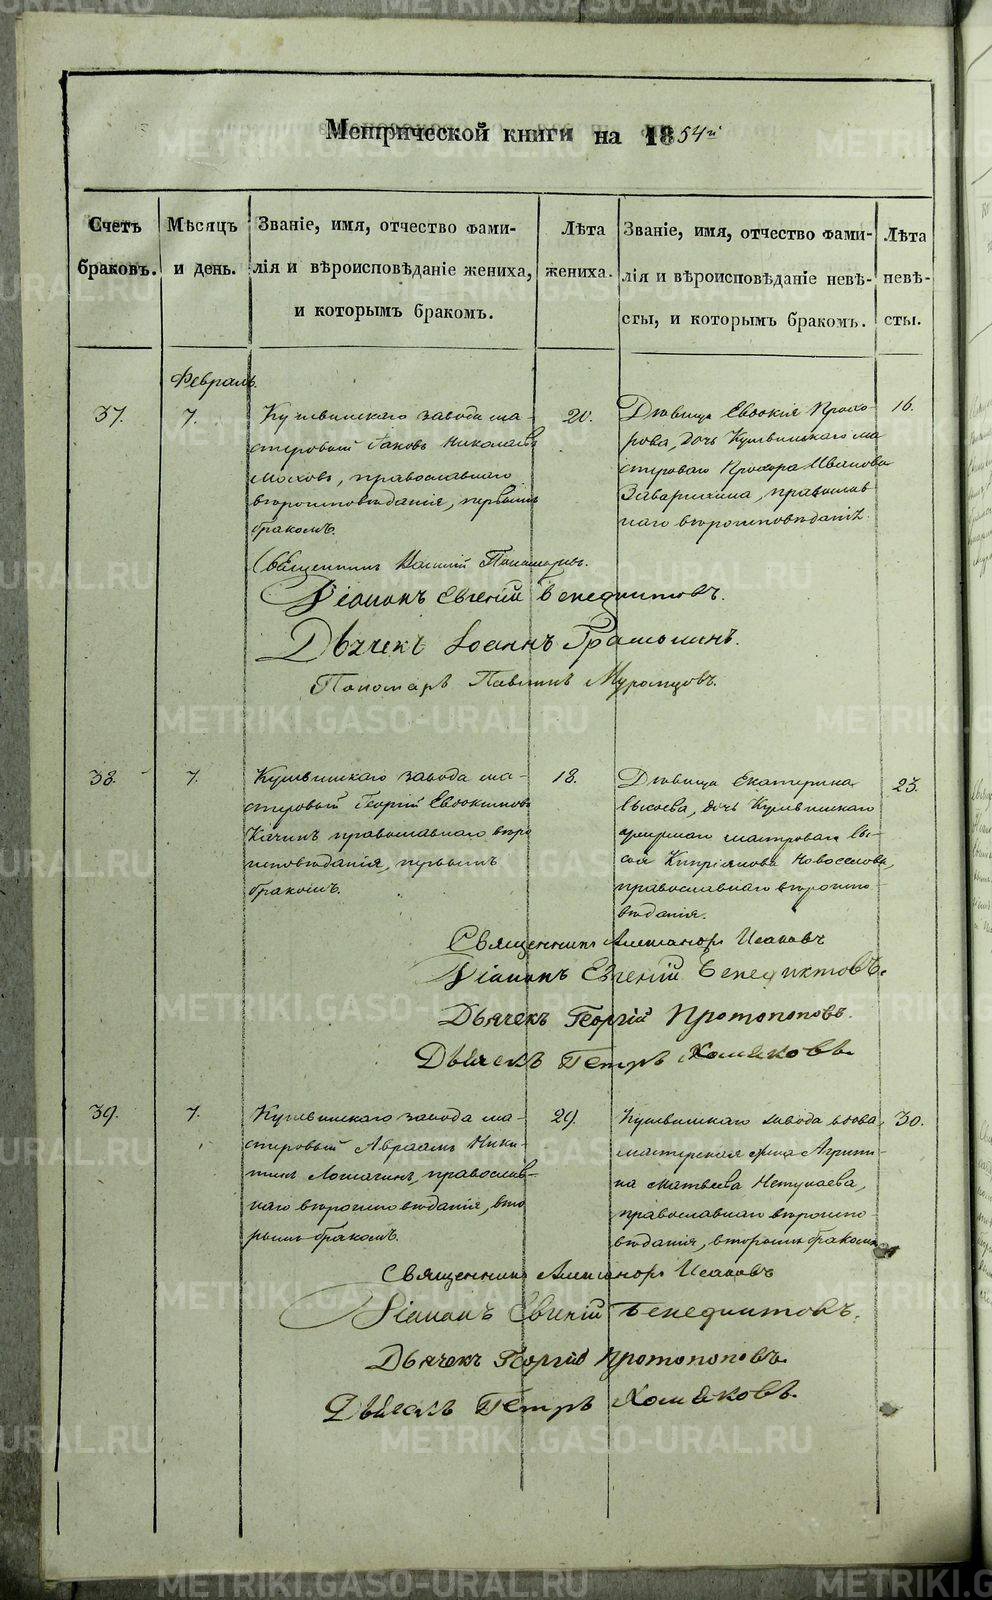 Метрической книги на 1854й
Счетъ браковъ.
Мѣсяцъ и день.
Званіе, имя, отчество фами-
лія и вѣроисповѣданіе жениха,
и которымъ бракомъ.
Лѣта
жениха.
Званіе, имя, отчество фами-
лія и вѣроисповѣданіе невѣ-
сты, и которымъ бракомъ.
Лѣта
невѣ-
сты.
Февраль.
37.
7.
Кушвинскаго завода ма-
стеровый Іаковъ Николаевъ
Моховъ, православнаго
вѣроисповѣданія, первымъ
бракомъ.
20.
Дѣвица Евдокія Прохо-
рова, дочь Кушвинскаго ма
стероваго Прохора Иванова
Заварихина, православ
наго вѣроисповѣданія.
16.
Священникъ Василій Пономаревъ.
Діаконъ Евгеній Бенедиктовъ.
Дьячекъ Іоаннъ Грамолинъ.
Пономарь Павлинъ Муромцовъ.
38.
7.
Кушвинскаго завода ма-
стеровый Георгій Евдокимовъ
Качинъ православнаго вѣро
исповѣданія, первымъ
бракомъ.
18.
Дѣвица Екатерина
дочь Кушвинскаго
мастероваго
Кипріянова Новоселова,
православнаго вѣроиспо-
вѣданія.
23.
Священникъ Александръ Исаковъ
Діаконъ Евгеній Бенедиктовъ.
Дьячекъ Георгій Протопоповъ.
Дьячекъ Петръ Хомяковъ.
39.
7.
Кушвинскаго завода ма-
стеровый Авраамъ Ники-
тинъ Ломагинъ, православ-
наго вѣроисповѣданія, вто
рымъ бракомъ.
29.
Кушвинскаго завода вдова
мастерская жена Агрипи-
на Матвѣева Нетунаева,
православнаго вѣроиспо-
вѣданія, вторымъ бракомъ
30.
Священникъ Александръ Исаковъ
Діаконъ Евгеній Бенедиктовъ.
Дьячекъ Георгій Протопоповъ.
Дьячекъ Петръ Хомяковъ.
METRIKI.GASO-URAL.RU